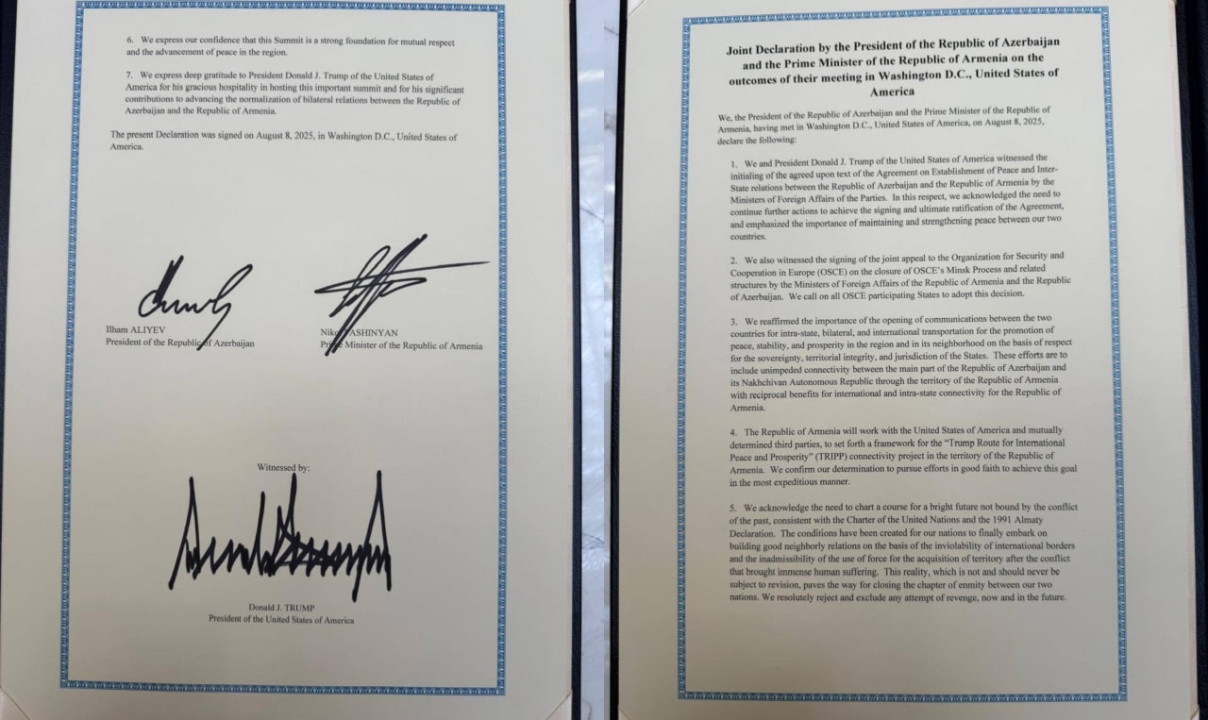 6. We express our confidence that this Summit is a strong foundation for mutual respect
and the advancement of peace in the region.
7. We express deep gratitude to President Donald J. Trump of the United States of
America for his gracious hospitality in hosting this important summit and for his significant
contributions to advancing the normalization of bilateral relations between the Republic of
Azerbaijan and the Republic of Armenia.
The present Declaration was signed on August 8, 2025, in Washington D.C., United States of
America.
Ilham ALIYEV
President of the Republic of Azerbaijan
Nikol PASHINYAN
Prime Minister of the Republic of Armenia
Witnessed by:
Donald J. TRUMP
President of the United States of America
Joint Declaration by the President of the Republic of Azerbaijan
and the Prime Minister of the Republic of Armenia on the
outcomes of their meeting in Washington D.C., United States of
America
We, the President of the Republic of Azerbaijan and the Prime Minister of the Republic of
Armenia, having met in Washington D.C., United States of America, on August 8, 2025,
declare the following:
1. We and President Donald J. Trump of the United States of America witnessed the
initialing of the agreed upon text of the Agreement on Establishment of Peace and Inter-
State relations between the Republic of Azerbaijan and the Republic of Armenia by the
Ministers of Foreign Affairs of the Parties. In this respect, we acknowledged the need to
continue further actions to achieve the signing and ultimate ratification of the Agreement,
and emphasized the importance of maintaining and strengthening peace between our two
countries.
2. We also witnessed the signing of the joint appeal to the Organization for Security and
Cooperation in Europe (OSCE) on the closure of OSCE's Minsk Process and related
structures by the Ministers of Foreign Affairs of the Republic of Armenia and the Republic
of Azerbaijan. We call on all OSCE participating States to adopt this decision.
3. We reaffirmed the importance of the opening of communications between the two
countries for intra-state, bilateral, and international transportation for the promotion of
peace, stability, and prosperity in the region and in its neighborhood on the basis of respect
for the sovereignty, territorial integrity, and jurisdiction of the States. These efforts are to
include unimpeded connectivity between the main part of the Republic of Azerbaijan and
its Nakhchivan Autonomous Republic through the territory of the Republic of Armenia
with reciprocal benefits for international and intra-state connectivity for the Republic of
Armenia.
4. The Republic of Armenia will work with the United States of America and mutually
determined third parties, to set forth a framework for the "Trump Route for International
Peace and Prosperity" (TRIPP) connectivity project in the territory of the Republic of
Armenia. We confirm our determination to pursue efforts in good faith to achieve this goal
in the most expeditious manner.
5. We acknowledge the need to chart a course for a bright future not bound by the conflict
of the past, consistent with the Charter of the United Nations and the 1991 Almaty
Declaration. The conditions have been created for our nations to finally embark on
building good neighborly relations on the basis of the inviolability of international borders
and the inadmissibility of the use of force for the acquisition of territory after the conflict
that brought immense human suffering. This reality, which is not and should never be
subject to revision, paves the way for closing the chapter of enmity between our two
nations. We resolutely reject and exclude any attempt of revenge, now and in the future.